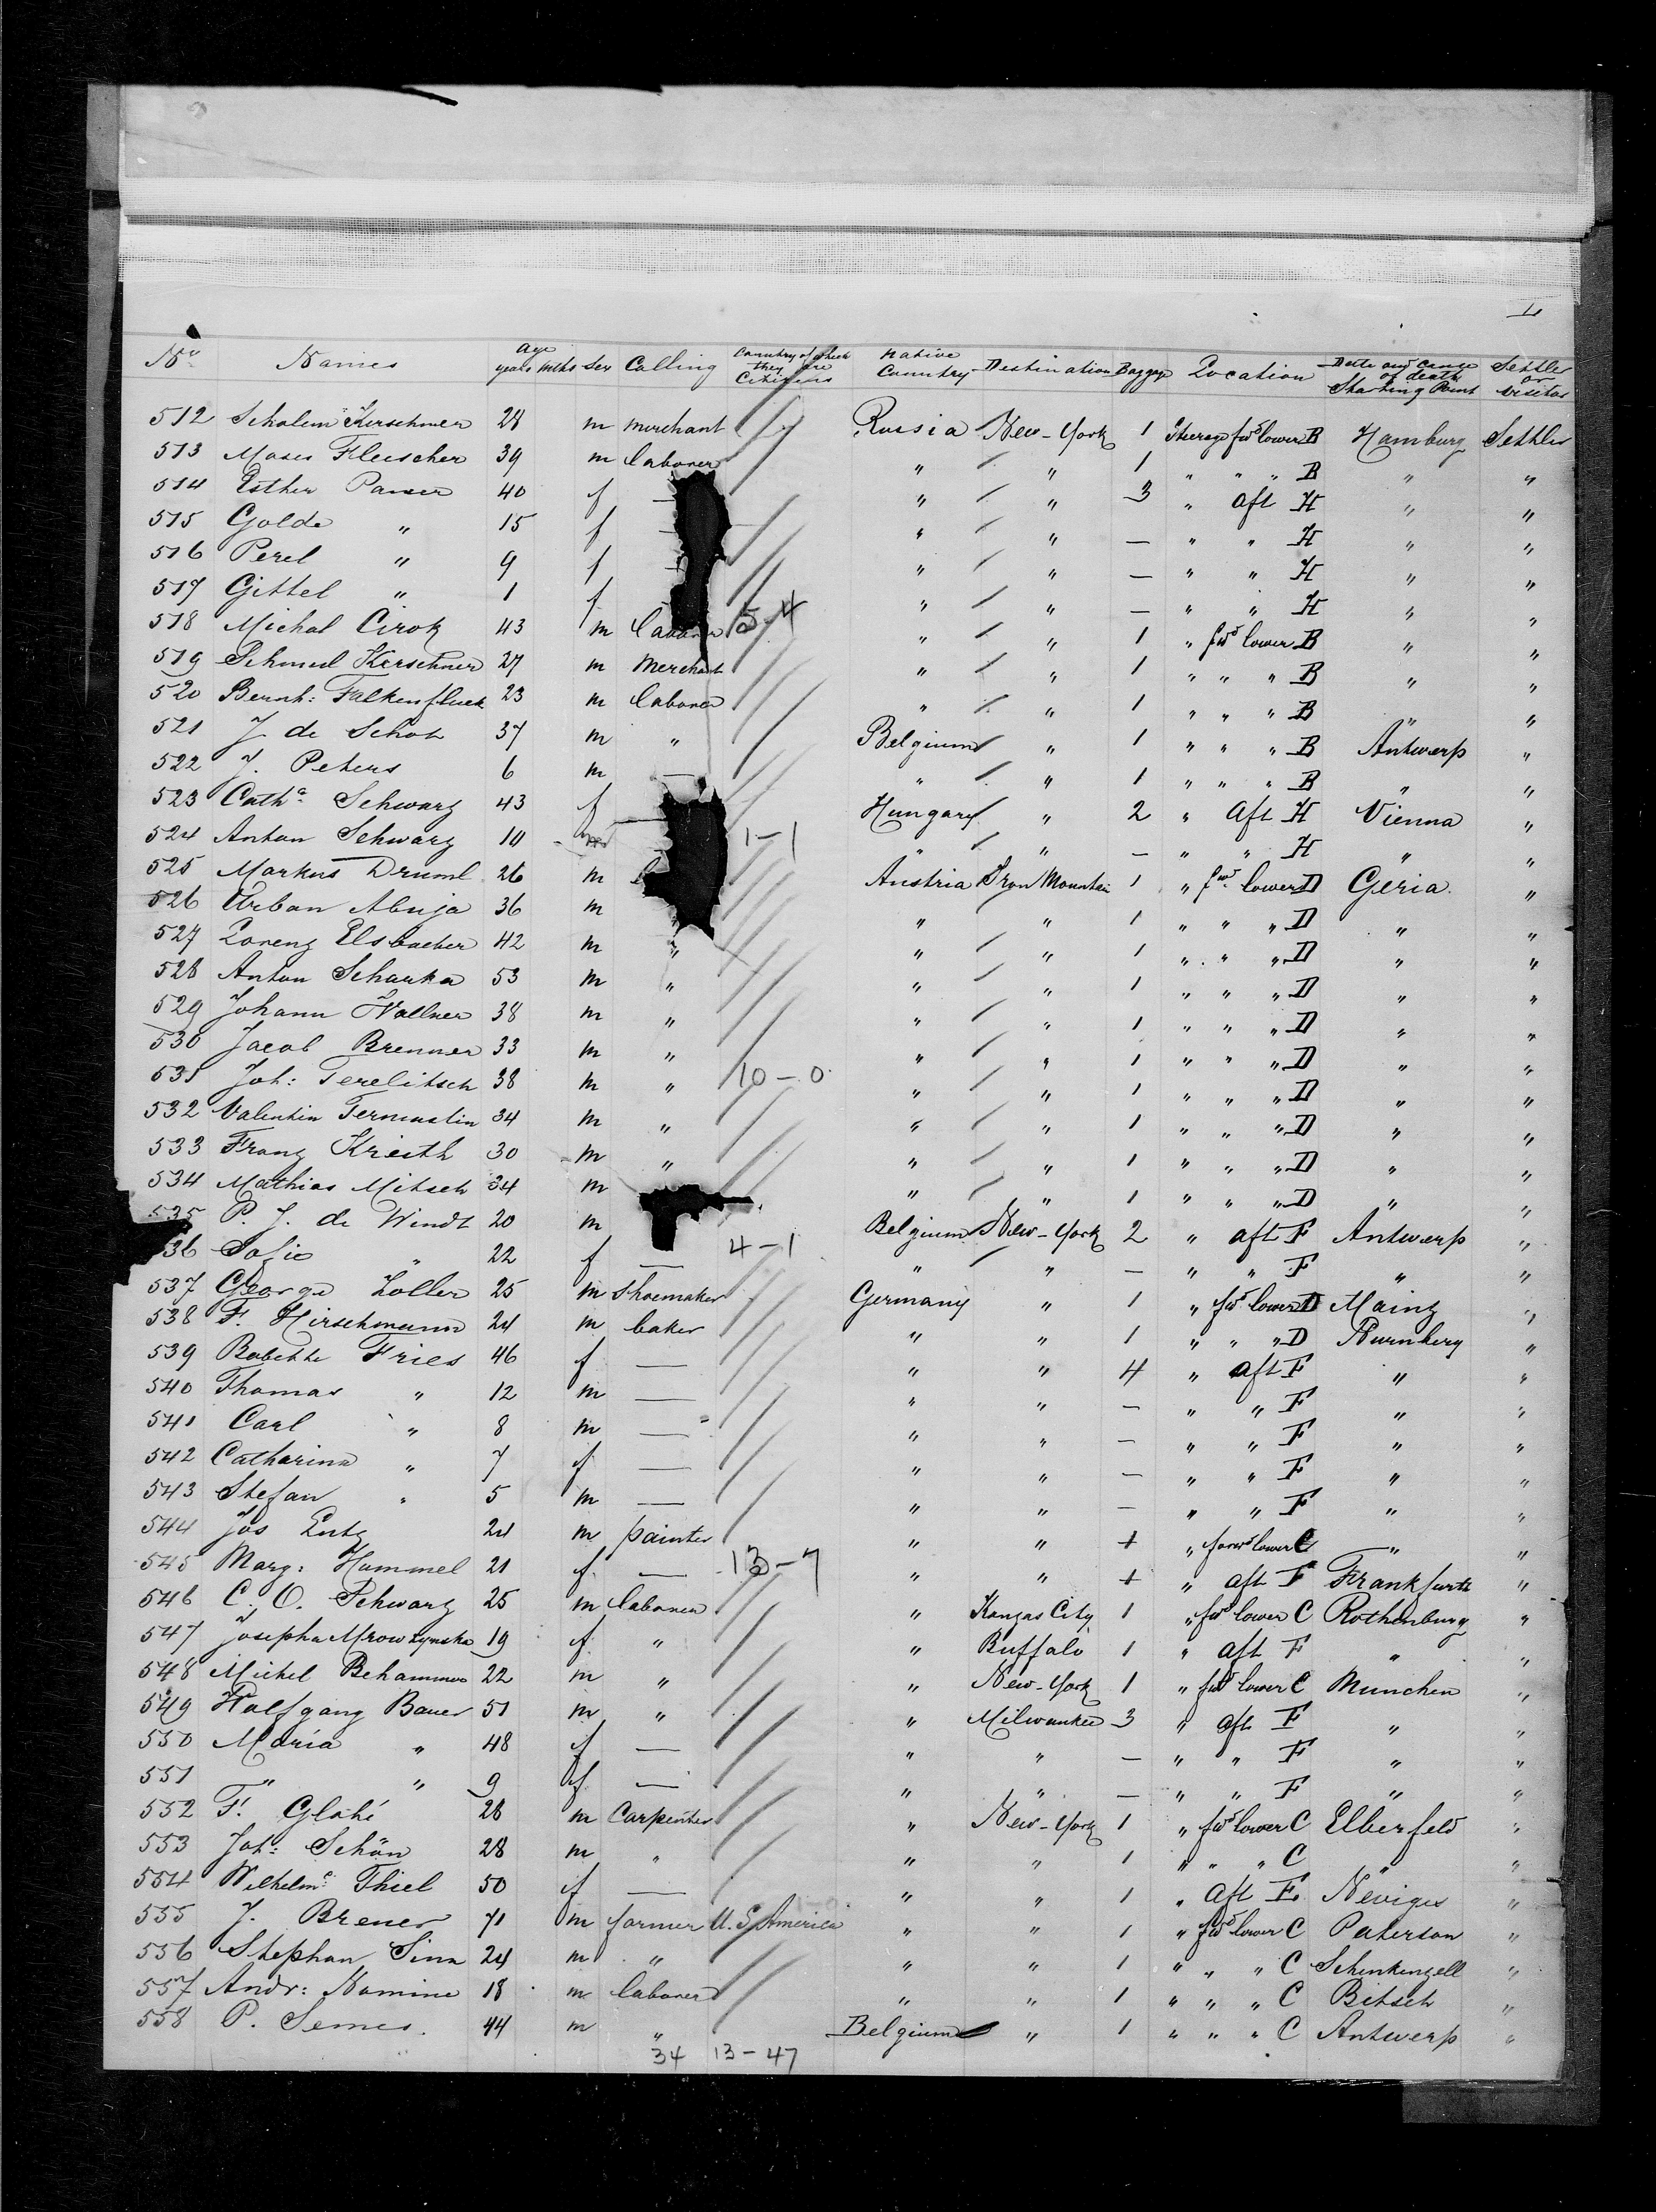 No Names Age years mths Sex Calling Country of which they are Citizens Native Country Destination Baggage Location Date and Cause of death Starting Point Settler or visitor
512 Scholem Kerschner 28 m merchant Russia New-York 1 Steerage fwd lower B Hamburg Settler
513 Moses Fleischer 39 m laborer " " 1 " " " B " "
514 Esther 40 f " " 3 " aft H " "
515 Golde " 15 f " " — " " H " "
516 Perel " 9 f " " — " " H " "
517 Gittel " 1 f " " — " " H " "
518 Michal Cirok 43 m laborer 5-4 " " 1 " fwd lower B " "
519 Schmul Kerschner 27 m Merchant " " 1 " " " B " "
520 Bernh: Falkenfluck 23 m laborer " " 1 " " " B " "
521 J de Schot 37 m " Belgium " 1 " " " B Antwerp "
522 J. Peters 6 m — " " 1 " " " B " "
523 Catha Schwarz 43 f Hungary " 2 " Aft H Vienna "
524 Anton Schwarz 10 1-1 " " — " " H " "
525 Markus Druml 26 m Austria Iron Mountain 1 " fwd lower D Geria "
526 Urban Abuja 36 m " " 1 " " " D " "
527 Lorenz Elsbacher 42 m " " " 1 " " " D " "
528 Anton Schauka 53 m " " " 1 " " " D " "
529 Johann Wallner 38 m " " " 1 " " " D " "
530 Jacob Brenner 33 m " " " 1 " " " D " "
531 Joh: Terelitsch 38 m " 10-0 " " 1 " " " D " "
532 Valentin 34 m " " " 1 " " " D " "
533 Franz Kreith 30 m " " " 1 " " " D " "
534 Mathias Mitsch 34 m " " 1 " " " D " "
535 P. J. de Windt 20 m Belgium New-York 2 " aft F Antwerp "
536 Sofie " 22 f — 4-1 " " — " " F " "
537 George Zoller 25 m Shoemaker Germany " 1 " fwd lower D Mainz "
538 F. Hirschmann 24 m baker " " 1 " " " D Nurnberg "
539 Babette Fries 46 f — " " 4 " aft F " "
540 Thomas " 12 m — " " — " " F " "
541 Carl " 8 m — " " — " " F " "
542 Catharina " 7 f — " " — " " F " "
543 Stefan " 5 m — " " — " " F " "
544 Jos Entz 24 m painter " " 1 " forwd lower C " "
545 Marg: Hammel 21 f — 13-7 " " 1 " aft F Frankfurth "
546 C. O. Schwarz 25 m laborer " Kanzas City 1 " fwd lower C Rothenburg "
547 Josepha Mrowzynska 19 f " " Buffalo 1 " aft F " "
548 Michel 22 m " " New-York 1 " fwd lower C Munchen "
549 Wolfgang Bauer 51 m " " Milwaukee 3 " aft F " "
550 Maria " 48 f — " " — " " F " "
551 " " 9 f — " " — " " F " "
552 F. Glahé 28 m Carpenter " New-York 1 " fwd lower C Elberfeld "
553 Joh: Schön 28 m " " " 1 " " " C " "
554 Wilhelme Thiel 50 f — " " 1 " Aft E Neviges "
555 J. Brener 71 m farmer U. S. America " " 1 " fwd lower C Paterson "
556 Stephan Sinn 24 m " " " 1 " " " C Schenkenzell "
557 Andr: Nomine 18 m laborer " " 1 " " " C Bitsch "
558 P. Semes. 44 m " Belgium " 1 " " " C Antwerp "
34 13-47